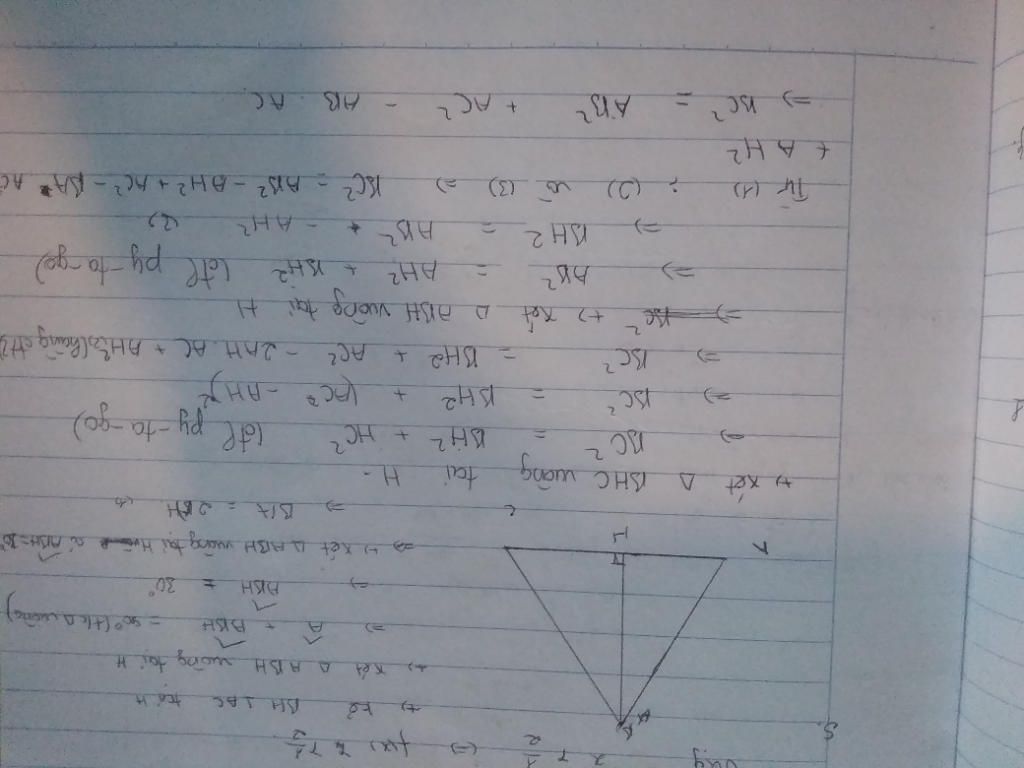 Vậy x ≥ 1/2 (=) f(x) ≥
5.
B
A
H
C
+) Kẻ BH ⊥ AC tại H
+) Xét Δ ABH vuông tại H
=) Â + ABH = 90° (Hc Δ vuông)
=) ABH = 30°
=) +) Xét Δ ABH vuông tại H có ABH = 30°
=) BA = 2AH (1)
+) Xét Δ BHC vuông tại H.
=) BC² = BH² + HC² (đl py-ta-go)
=) BC² = BH² + (AC - AH)²
=) BC² = BH² + AC² - 2AH. AC + AH² (3) (hằng
+) Xét Δ ABH vuông tại H
=) AB² = AH² + BH² (đl py-ta-go)
=) BH² = AB² - AH² (2)
Từ (1) ; (2) và (3) =) BC² = AB² - AH² + AC² - BA. AC
+ AH²
=) BC² = AB² + AC² - AB. AC